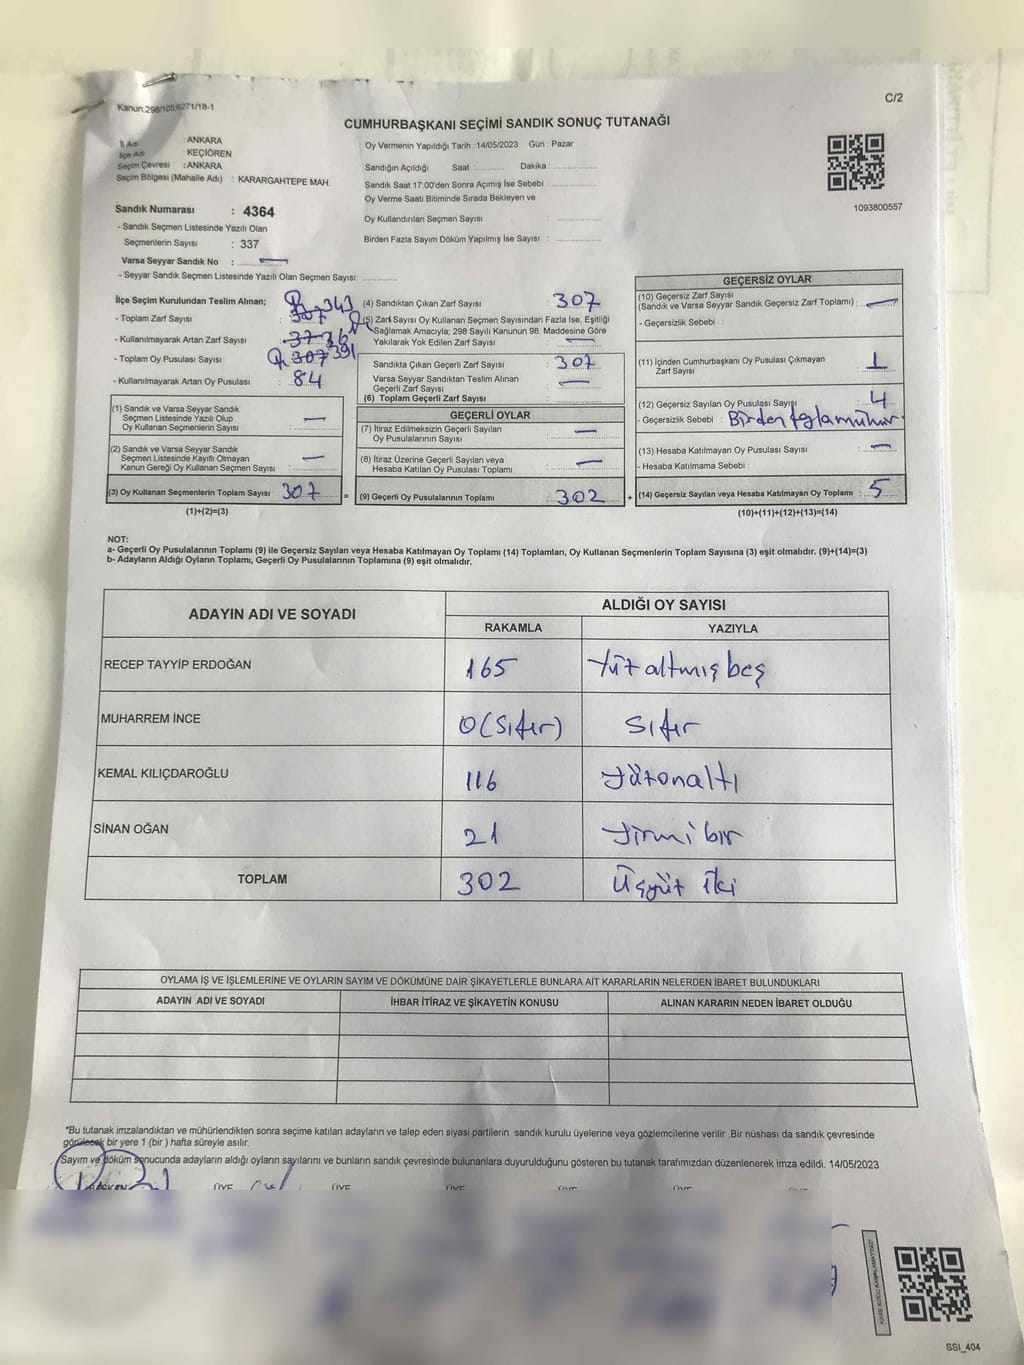 Kanun:298/105;6271/18-1
C/2
CUMHURBAŞKANI SEÇİMİ SANDIK SONUÇ TUTANAĞI
İl Adı : ANKARA
İlçe Adı : KEÇİÖREN
Seçim Çevresi : ANKARA
Seçim Bölgesi (Mahalle Adı) : KARARGAHTEPE MAH.
Sandık Numarası : 4364
- Sandık Seçmen Listesinde Yazılı Olan
Seçmenlerin Sayısı : 337
Varsa Seyyar Sandık No : —
- Seyyar Sandık Seçmen Listesinde Yazılı Olan Seçmen Sayısı:
Oy Vermenin Yapıldığı Tarih : 14/05/2023 Gün : Pazar
Sandığın Açıldığı Saat Dakika :
Sandık Saat 17:00'den Sonra Açımış İse Sebebi :
Oy Verme Saati Bitiminde Sırada Bekleyen ve
Oy Kullandırılan Seçmen Sayısı :
Birden Fazla Sayım Döküm Yapılmış İse Sayısı :
1093800557
İlçe Seçim Kurulundan Teslim Alınan;
- Toplam Zarf Sayısı : 307 343
- Kullanılmayarak Artan Zarf Sayısı :
- Toplam Oy Pusulası Sayısı : 307 391
- Kullanılmayarak Artan Oy Pusulası : 84
(1) Sandık ve Varsa Seyyar Sandık
Seçmen Listesinde Yazılı Olup
Oy Kullanan Seçmenlerin Sayısı : —
(2) Sandık ve Varsa Seyyar Sandık
Seçmen Listesinde Kayıtlı Olmayan
Kanun Gereği Oy Kullanan Seçmen Sayısı : —
(3) Oy Kullanan Seçmenlerin Toplam Sayısı : 307
(1)+(2)=(3)
=
(4) Sandıktan Çıkan Zarf Sayısı : 307
(5) Zarf Sayısı Oy Kullanan Seçmen Sayısından Fazla İse, Eşitliği
Sağlamak Amacıyla; 298 Sayılı Kanunun 98. Maddesine Göre
Yakılarak Yok Edilen Zarf Sayısı : —
Sandıkta Çıkan Geçerli Zarf Sayısı : 307
Varsa Seyyar Sandıktan Teslim Alınan
Geçerli Zarf Sayısı : —
(6) Toplam Geçerli Zarf Sayısı :
GEÇERLİ OYLAR
(7) İtiraz Edilmeksizin Geçerli Sayılan
Oy Pusulalarının Sayısı : —
(8) İtiraz Üzerine Geçerli Sayılan veya
Hesaba Katılan Oy Pusulası Toplamı : —
(9) Geçerli Oy Pusulalarının Toplamı : 302
+
GEÇERSİZ OYLAR
(10) Geçersiz Zarf Sayısı
(Sandık ve Varsa Seyyar Sandık Geçersiz Zarf Toplamı) : —
- Geçersizlik Sebebi :
(11) İçinden Cumhurbaşkanı Oy Pusulası Çıkmayan
Zarf Sayısı : 1
(12) Geçersiz Sayılan Oy Pusulası Sayısı : 4
- Geçersizlik Sebebi : Birden fazla mühür
(13) Hesaba Katılmayan Oy Pusulası Sayısı : —
- Hesaba Katılmama Sebebi :
(14) Geçersiz Sayılan veya Hesaba Katılmayan Oy Toplamı : 5
(10)+(11)+(12)+(13)=(14)
NOT:
a- Geçerli Oy Pusulalarının Toplamı (9) ile Geçersiz Sayılan veya Hesaba Katılmayan Oy Toplamı (14) Toplamları, Oy Kullanan Seçmenlerin Toplam Sayısına (3) eşit olmalıdır. (9)+(14)=(3)
b- Adayların Aldığı Oyların Toplamı, Geçerli Oy Pusulalarının Toplamına (9) eşit olmalıdır.
ADAYIN ADI VE SOYADI
ALDIĞI OY SAYISI
RAKAMLA YAZIYLA
RECEP TAYYİP ERDOĞAN 165 Yüz altmış beş
MUHARREM İNCE 0 (Sıfır) Sıfır
KEMAL KILIÇDAROĞLU 116 Yüzonaltı
SİNAN OĞAN 21 Yirmi bir
TOPLAM 302 Üçyüz iki
OYLAMA İŞ VE İŞLEMLERİNE VE OYLARIN SAYIM VE DÖKÜMÜNE DAİR ŞİKAYETLERLE BUNLARA AİT KARARLARIN NELERDEN İBARET BULUNDUKLARI
ADAYIN ADI VE SOYADI İHBAR İTİRAZ VE ŞİKAYETİN KONUSU ALINAN KARARIN NEDEN İBARET OLDUĞU
*Bu tutanak imzalandıktan ve mühürlendikten sonra seçime katılan adayların ve talep eden siyasi partilerin sandık kurulu üyelerine veya gözlemcilerine verilir .Bir nüshası da sandık çevresinde
görülecek bir yere 1 (bir ) hafta süreyle asılır.
Sayım ve döküm sonucunda adayların aldığı oyların sayılarını ve bunların sandık çevresinde bulunanlara duyurulduğunu gösteren bu tutanak tarafımızdan düzenlenerek imza edildi. 14/05/2023
BAŞKAN ÜYE ÜYE ÜYE ÜYE ÜYE ÜYE
SSİ_404